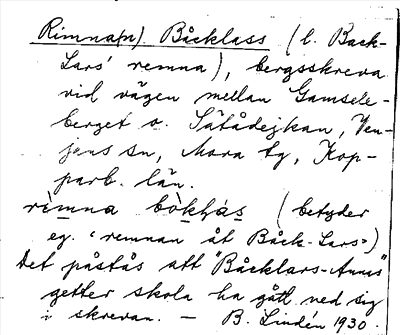 Rimna(n) Båcklass (l. Back-
Lars' remna), bergsskreva
vid vägen mellan Gamsele-
berget o. Sätådejkan, Ven-
jans sn, Mora tg, Kop-
parb. län.
rimna bòkḷás (betyder
eg. "remnan åt Båck-Lars")
Det påstås att "Båcklars-Annas"
getter skola ha gått ned sig
i skrevan. — B. Lindén 1930